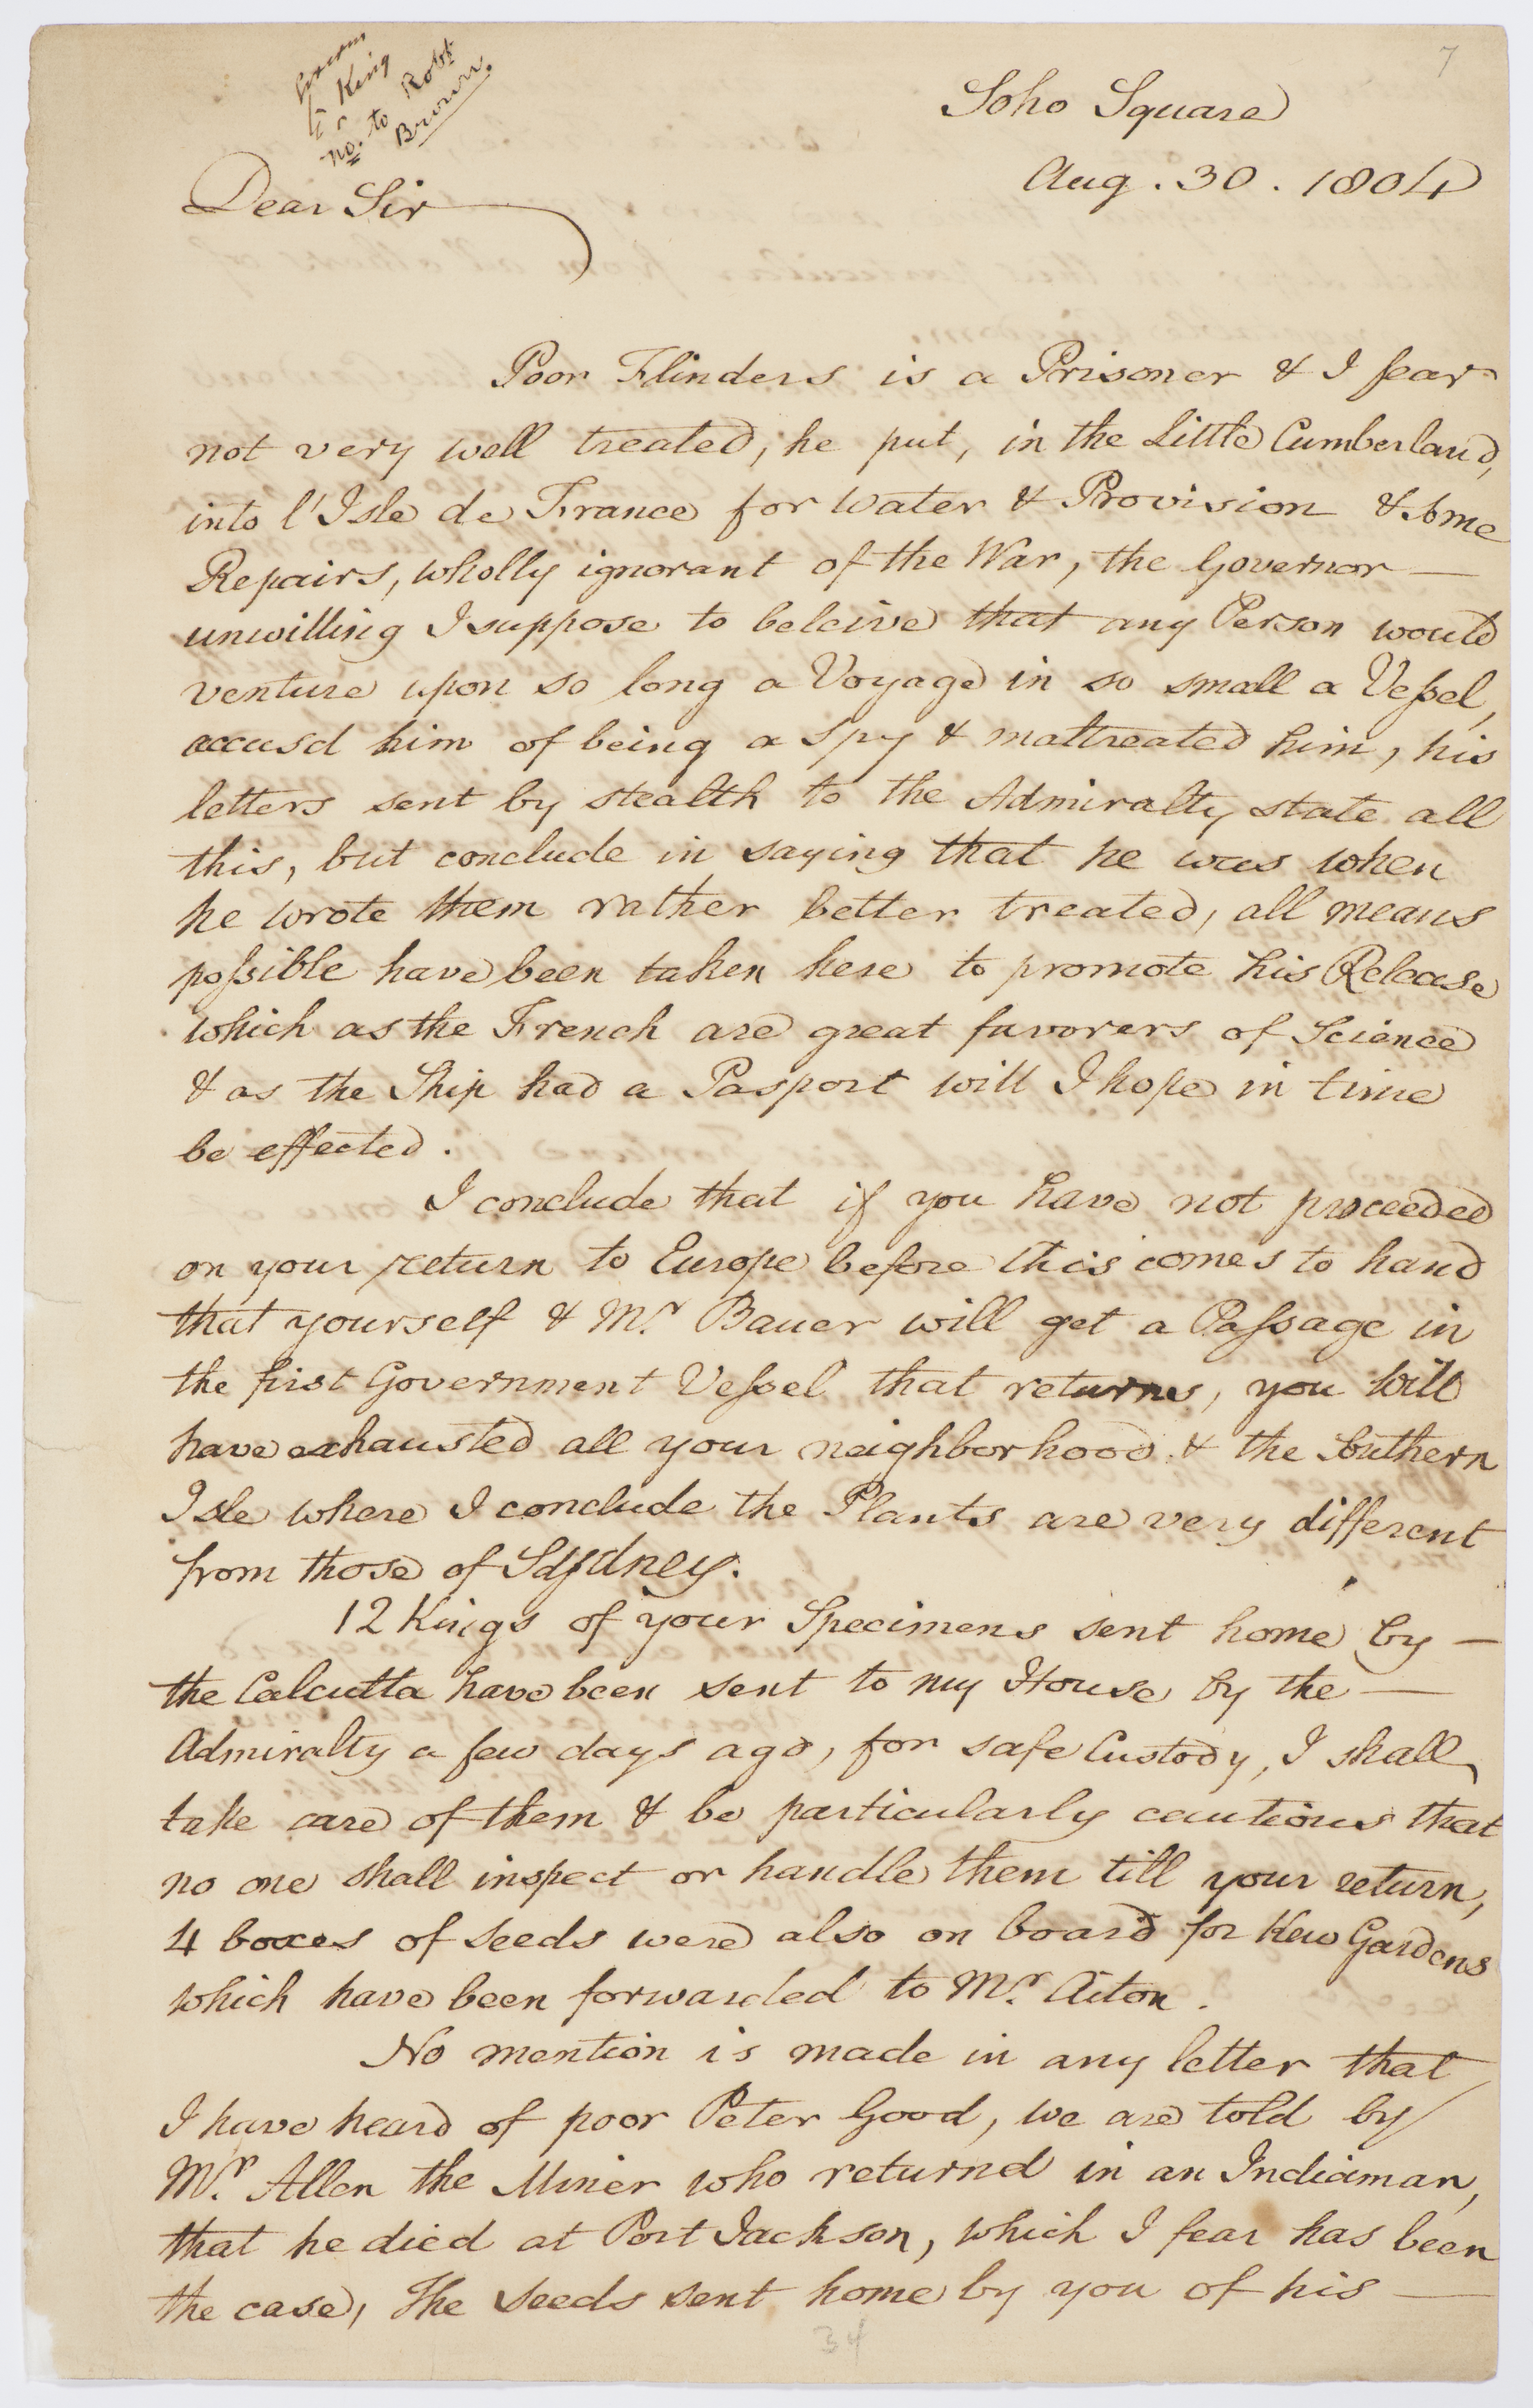 7
Govern
r King
no. to Robt
Brown.
Soho Square
Aug. 30. 1804
Dear Sir
Poor Flinders is a Prisoner & I fear
not very well treated, he put, in the Little Cumberland,
into l'Isle de France for Water & Provision & some
Repairs, wholly ignorant of the War, the Governor —
unwilling I suppose to beleive that any Person would
venture upon so long a Voyage in so small a Vessel,
accusd him of being a Spy & maltreated him, his
letters sent by stealth to the Admiralty state all
this, but conclude in saying that he was when
he wrote them rather better treated, all means
possible have been taken here to promote his Release
which as the French are great favorers of Science
& as the Ship had a Pasport will I hope in time
be effected.
I conclude that if you have not proceeded
on your return to Europe before this comes to hand
that yourself & Mr. Bauer will get a Passage in
the first Government Vessel that returns, you will
have exhausted all your neighborhood & the Southern
Isle where I conclude the Plants are very different
from those of Sydney.
12 Kings of your Specimens sent home by —
the Calcutta have been sent to my House by the —
Admiralty a few days ago, for safe Custody, I shall
take care of them & be particularly cautious that
no one shall inspect or handle them till your return,
4 boxes of seeds were also on board for Kew Gardens
which have been forwarded to Mr. Aiton.
No mention is made in any letter that
I have heard of poor Peter Good, we are told by
Mr. Allen the Miner who returnd in an Indiaman,
that he died at Port Jackson, which I fear has been
the case, The seeds sent home by you of his —
34